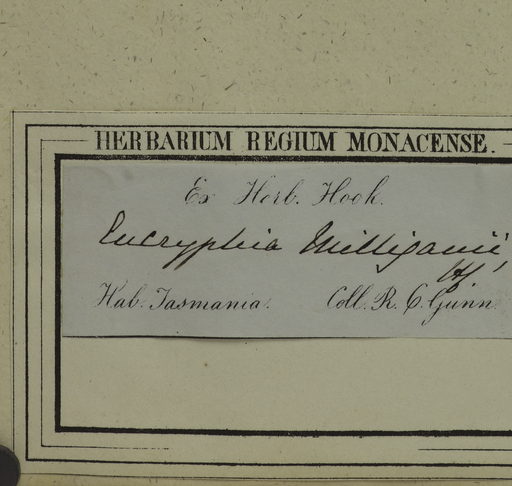 HERBARIUM REGIUM MONACENSE.
Ex Herb. Hook.
Eucryphia Milliganii
Hab. Tasmania. Coll. R. C. Gunn.